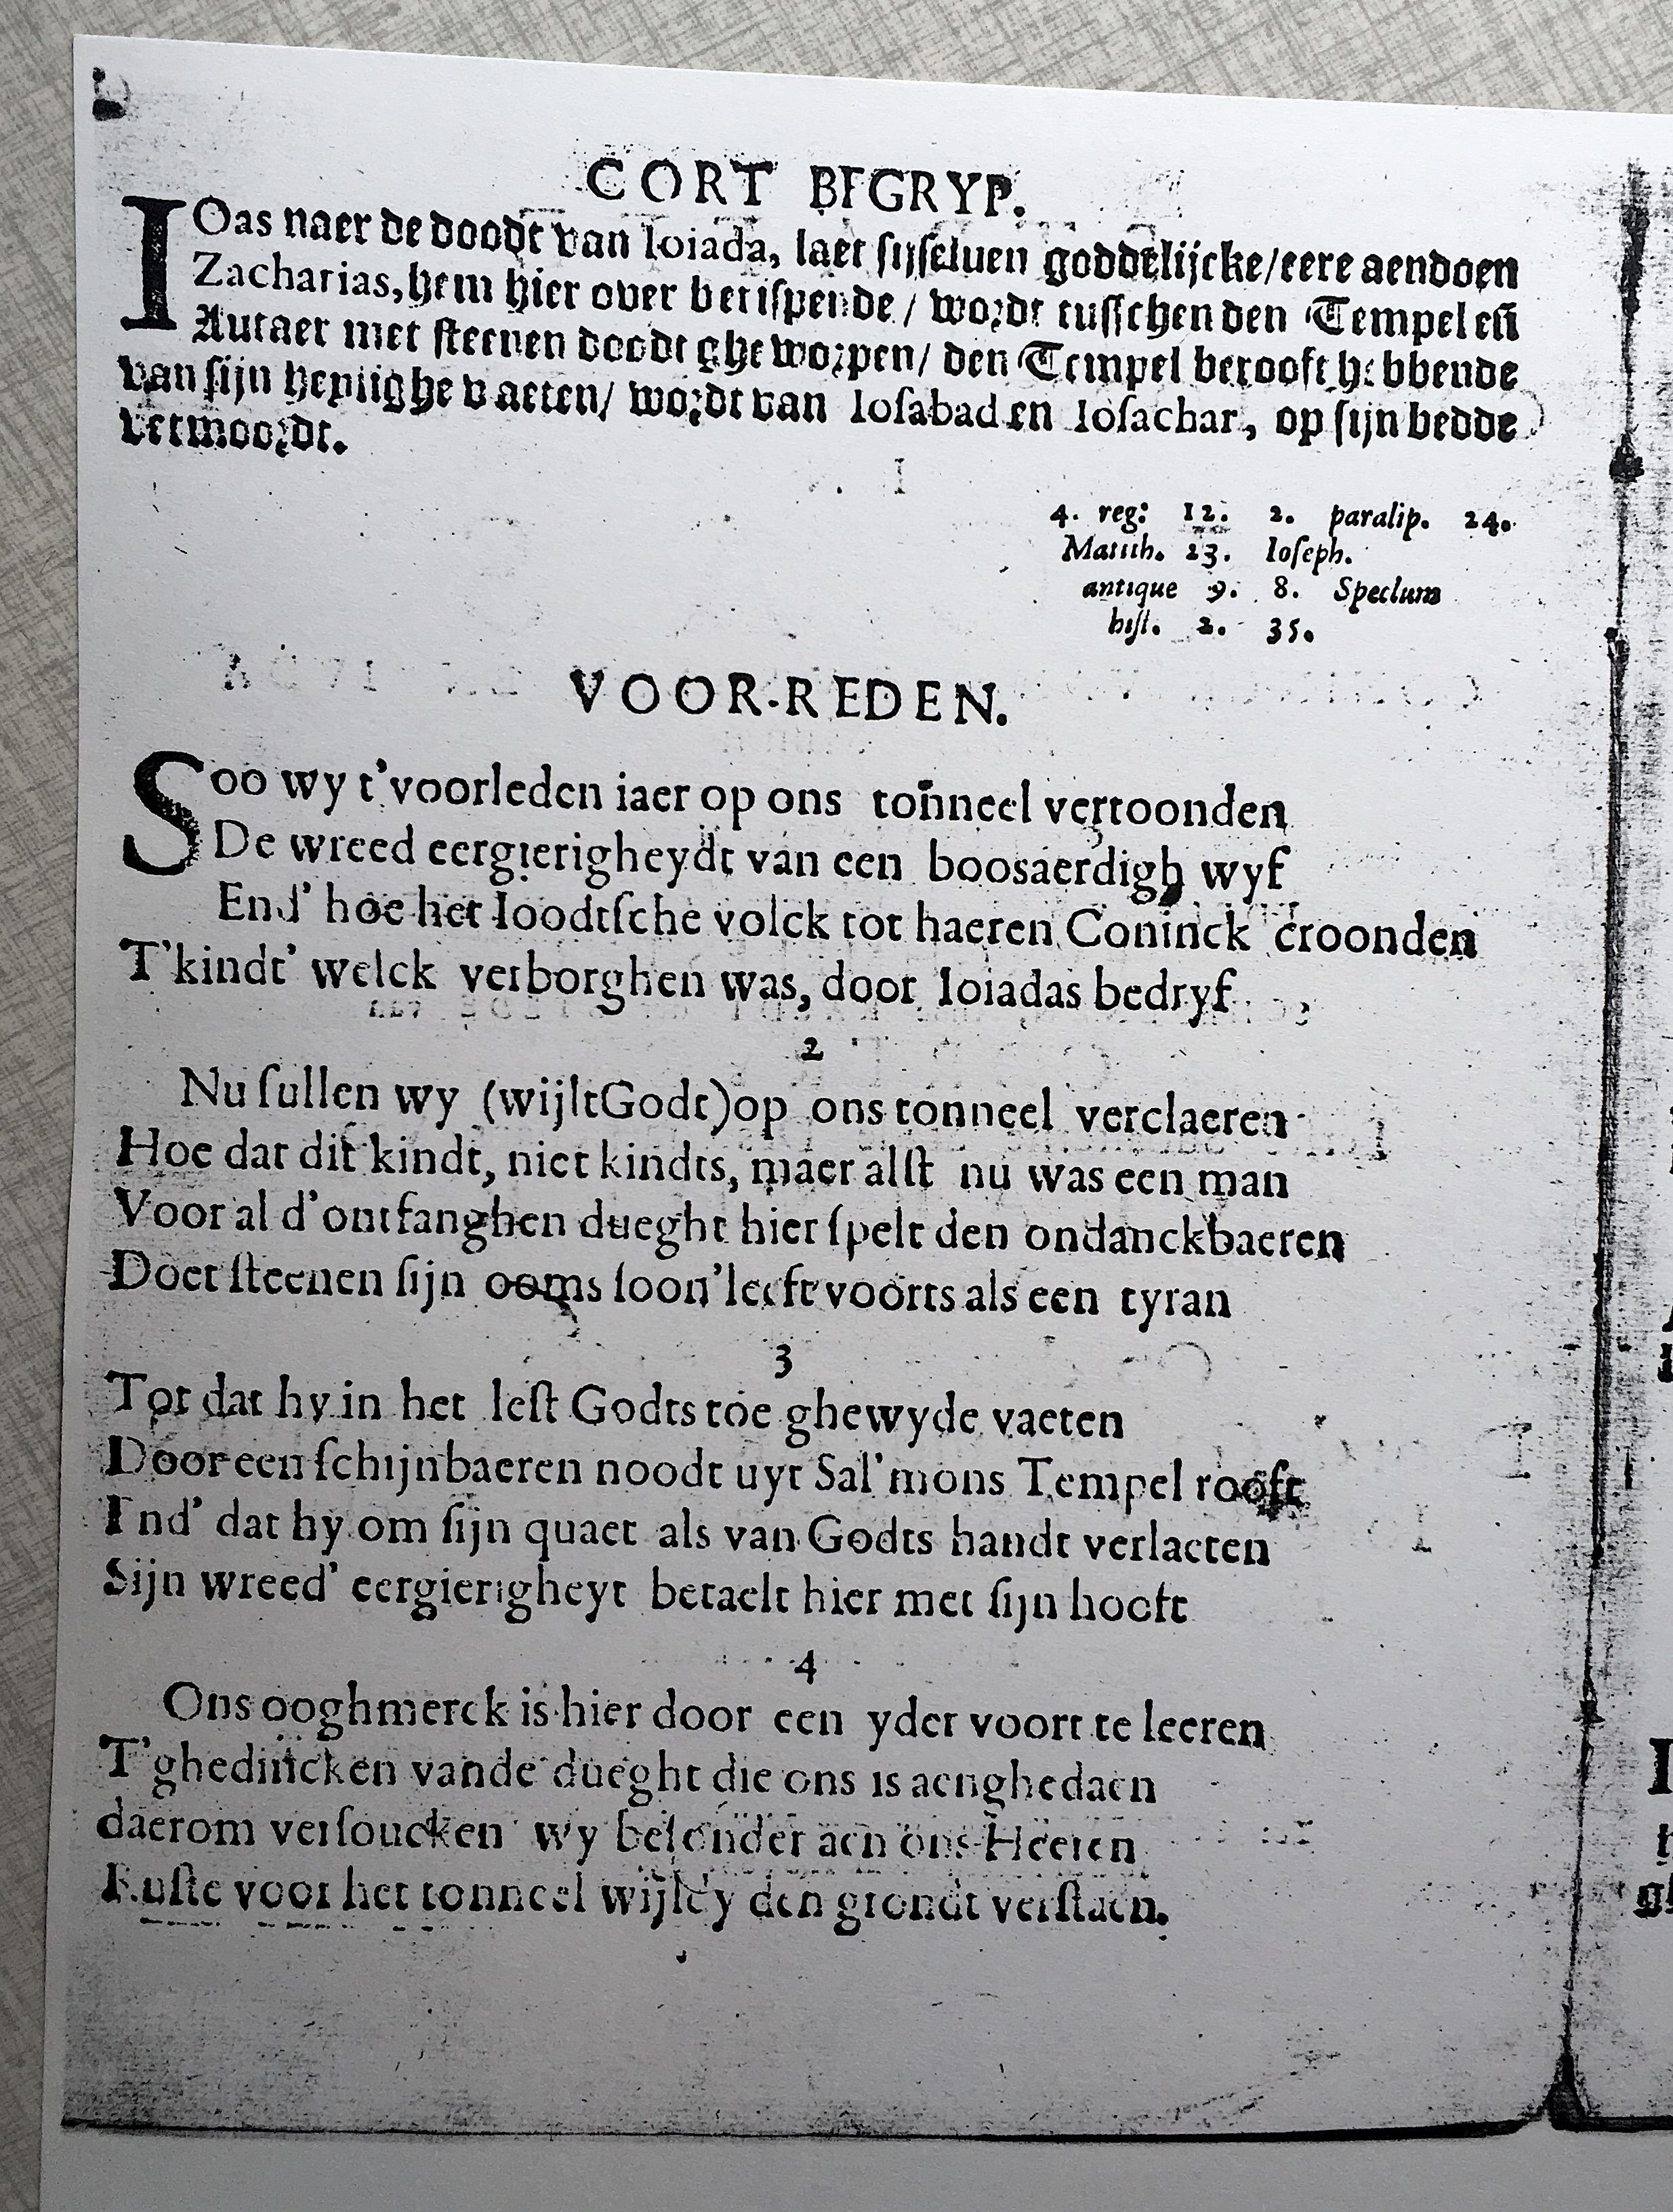 CORT BEGRYP.
IOas naer de doodt van Ioiada, laet sijselven goddelijcke/eere aendoen
Zacharias, hem hier over berispende / wordt tusschen den Tempel eñ
Autaer met steenen doodt gheworpen/ den Tempel berooft hebbende
van sijn heylighe vaeten/ wordt van Iosabad en Iosachar, op sijn bedde
vermoordt.
4. reg: 12. 2. paralip. 24.
Matth. 23. Ioseph.
antique 9. 8. Speclum
hist. 2. 35.
VOOR-REDEN.
Soo wy t'voorleden iaer op ons toñneel vertoonden
De wreed eergierigheydt van een boosaerdigh wyf
End' hoe het Ioodtsche volck tot haeren Coninck croonden
T'kindt' welck verborghen was, door Ioiadas bedryf
2
Nu sullen wy (wijltGodt)op ons tonneel verclaeren
Hoe dat dit kindt, niet kindts, maer alst nu was een man
Voor al d'ontfanghen dueght hier spelt den ondanckbaeren
Doet steenen sijn ooms soon' leeft voorts als een tyran
3
Tot dat hy in het lest Godts toe ghewyde vaeten
Door een schijnbaeren noodt uyt Sal'mons Tempel rooft
End' dat hy om sijn quaet als van Godts handt verlaeten
Sijn wreed' eergierigheyt betaelt hier met sijn hooft
4
Ons ooghmerck is hier door een yder voort te leeren
T'ghedincken vande dueght die ons is aenghedaen
daerom versoucken wy besonder aen ons Heeren
Ruste voor het tonneel wijl'y den grondt verstaen.